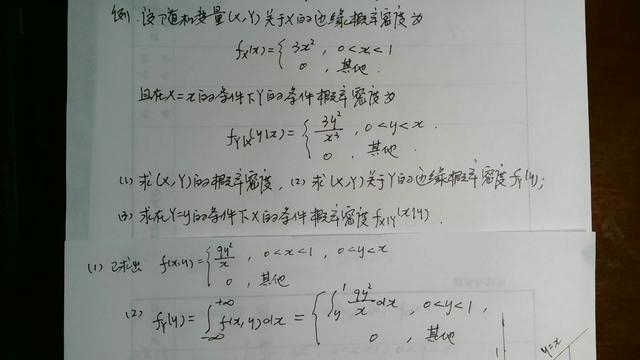 例.设随机变量(X,Y)关于X的边缘概率密度为
f_X(x)={ 3x², 0<x<1
0, 其他.
且在X=x的条件下Y的条件概率密度为
f_{Y|X}(y|x)={ 3y²/x³, 0<y<x.
0, 其他.
(1) 求(X,Y)的概率密度, (2) 求(X,Y)关于Y的边缘概率密度f_Y(y);
(3) 求在Y=y的条件下X的条件概率密度f_{X|Y}(x|y).
(1) 已求出 f(x,y)={ 9y²/x, 0<x<1, 0<y<x
0, 其他
(2) f_Y(y)=∫_{-∞}^{+∞} f(x,y)dx={ ∫_y^1 9y²/x dx, 0<y<1,
0, 其他
y=x
1